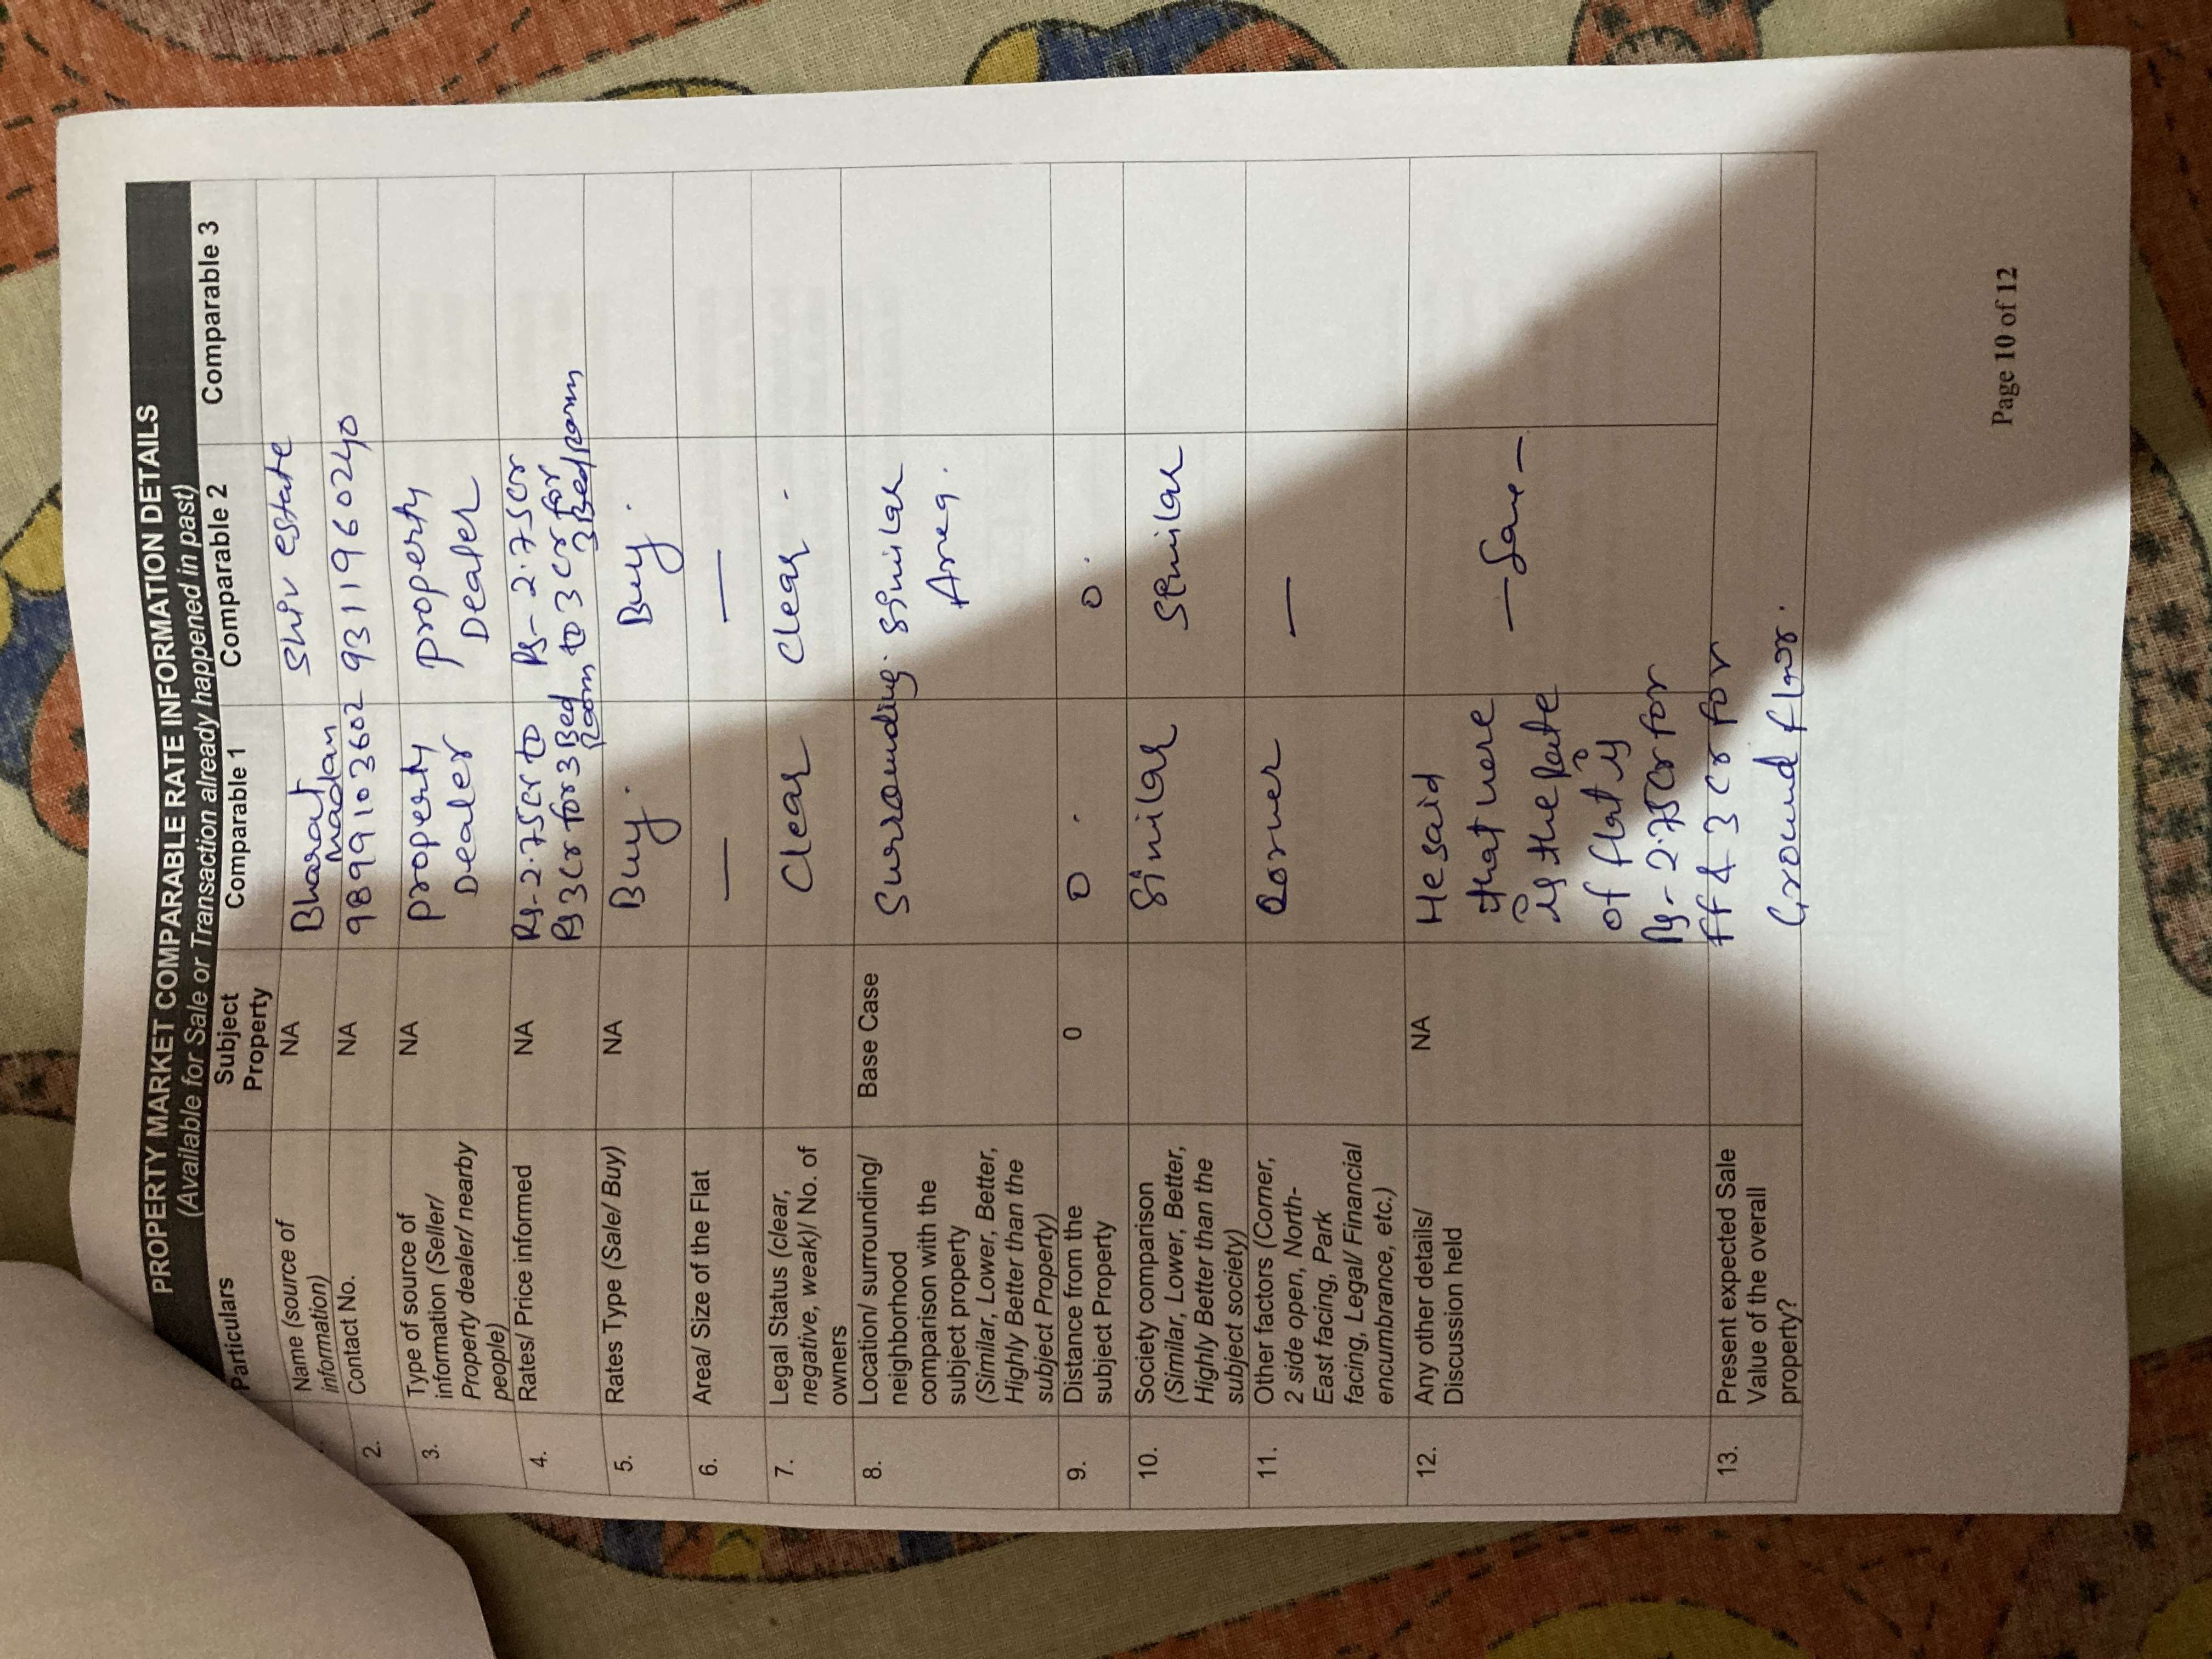 PROPERTY MARKET COMPARABLE RATE INFORMATION DETAILS
(Available for Sale or Transaction already happened in past)
Particulars Subject Property Comparable 1 Comparable 2 Comparable 3
Name (source of information) NA Bharat Madan Shiv estate
2. Contact No. NA 9899103602 9311960240
3. Type of source of information (Seller/ Property dealer/ nearby people) NA property Dealer property Dealer
4. Rates/ Price informed NA Rs-2.75cr to Rs 3cr for 3 Bed Room Rs-2.75cr to 3 cr for 3 Bedroom
5. Rates Type (Sale/ Buy) NA Buy. Buy.
6. Area/ Size of the Flat — —
7. Legal Status (clear, negative, weak)/ No. of owners Clear Clear.
8. Location/ surrounding/ neighborhood comparison with the subject property (Similar, Lower, Better, Highly Better than the subject Property) Base Case Surrounding. Similar Area.
9. Distance from the subject Property 0 0. 0.
10. Society comparison (Similar, Lower, Better, Highly Better than the subject society) Similar Similar
11. Other factors (Corner, 2 side open, North-East facing, Park facing, Legal/ Financial encumbrance, etc.) Corner —
12. Any other details/ Discussion held NA He said that here is the Rate of flat is Rs-2.75cr for FF & 3 cr for Ground floor. — Same —
13. Present expected Sale Value of the overall property?
Page 10 of 12